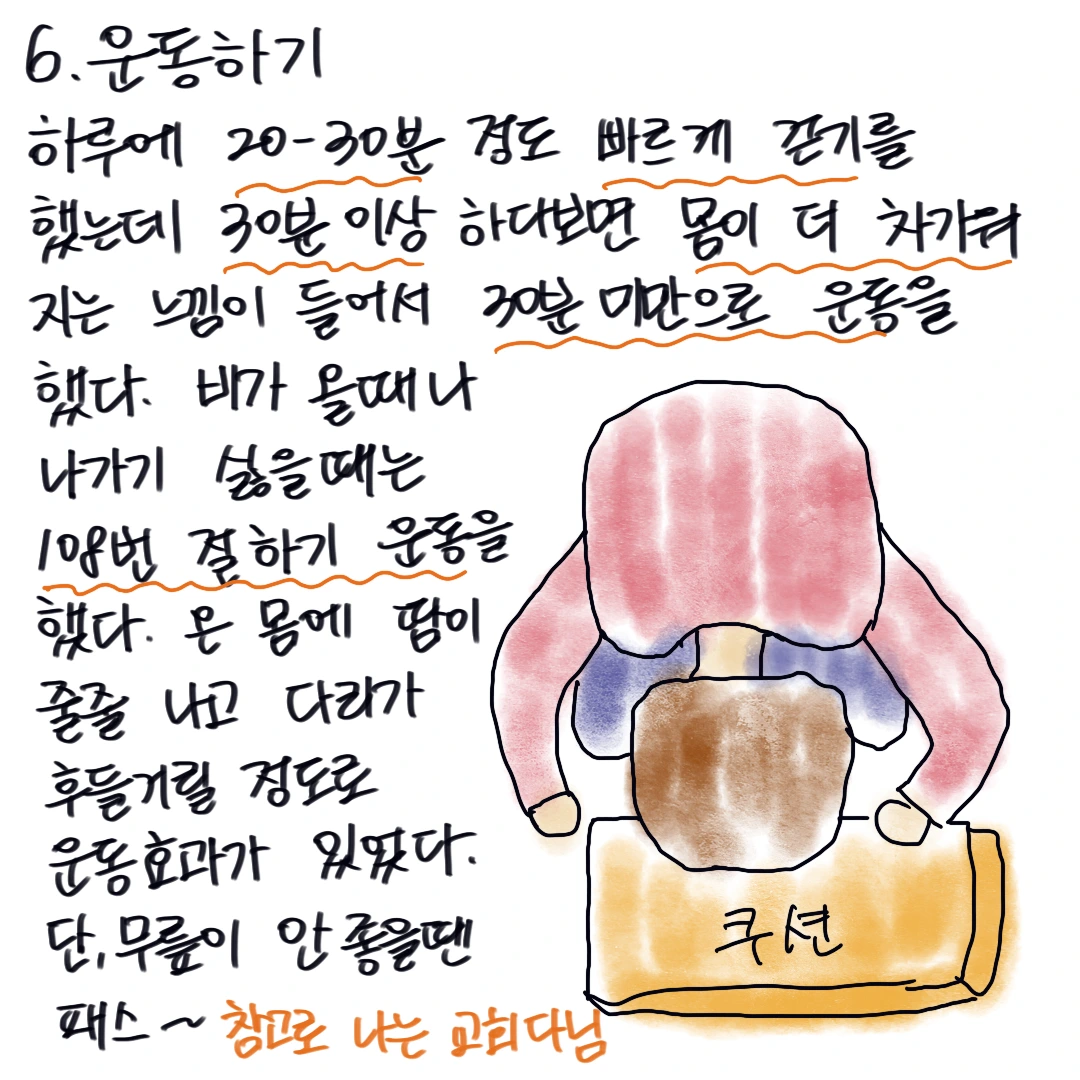 6. 운동하기
하루에 20-30분 정도 빠르게 걷기를
했는데 30분 이상 하다보면 몸이 더 차가워
지는 느낌이 들어서 30분 미만으로 운동을
했다. 비가 올때나
나가기 싫을때는
108번 절하기 운동을
했다. 온 몸에 땀이
줄줄 나고 다리가
후들거릴 정도로
운동효과가 있었다.
단, 무릎이 안 좋을땐
패스~ 참고로 나는 교회다님
쿠션